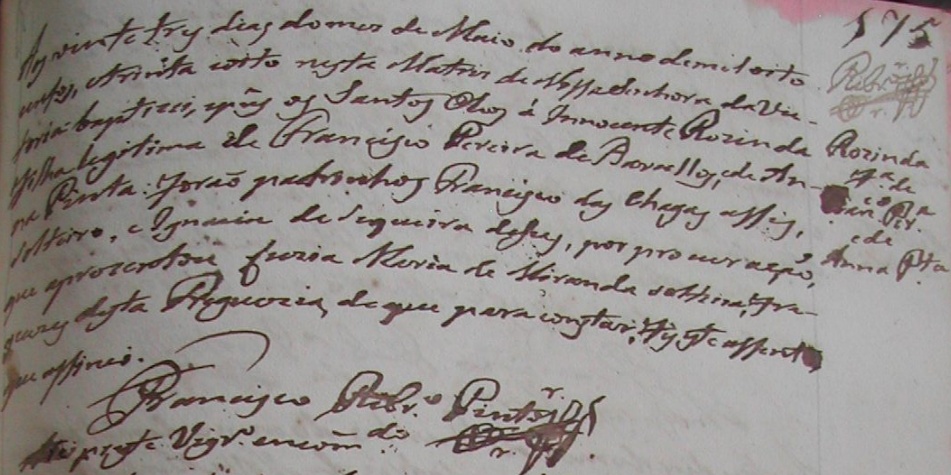 Aos vinte tres dias do mes de Maio do anno de mil oito
centos, e trinta e oito nesta Matris de Nossa Senhora da Vic-
toria baptizei, e puz os Santos Oleos á Innocente Rozinda
filha legitima de Francisco Pereira de Barcellos, e de An-
na Pinta. Forão padrinhos Francisco das Chagas
solteiro, e Ignacia de Siqueira, por procuração,
que aprezentou Luzia Maria de Miranda solteira, Fre-
guezes desta Freguezia, de que para constar, fiz este assento
que assinei.
Francisco Ribr.º Pinto
Vigr.º encom.do
575
Rozinda
f.ª de
Fran.co Per.ª
e de
Anna Pta